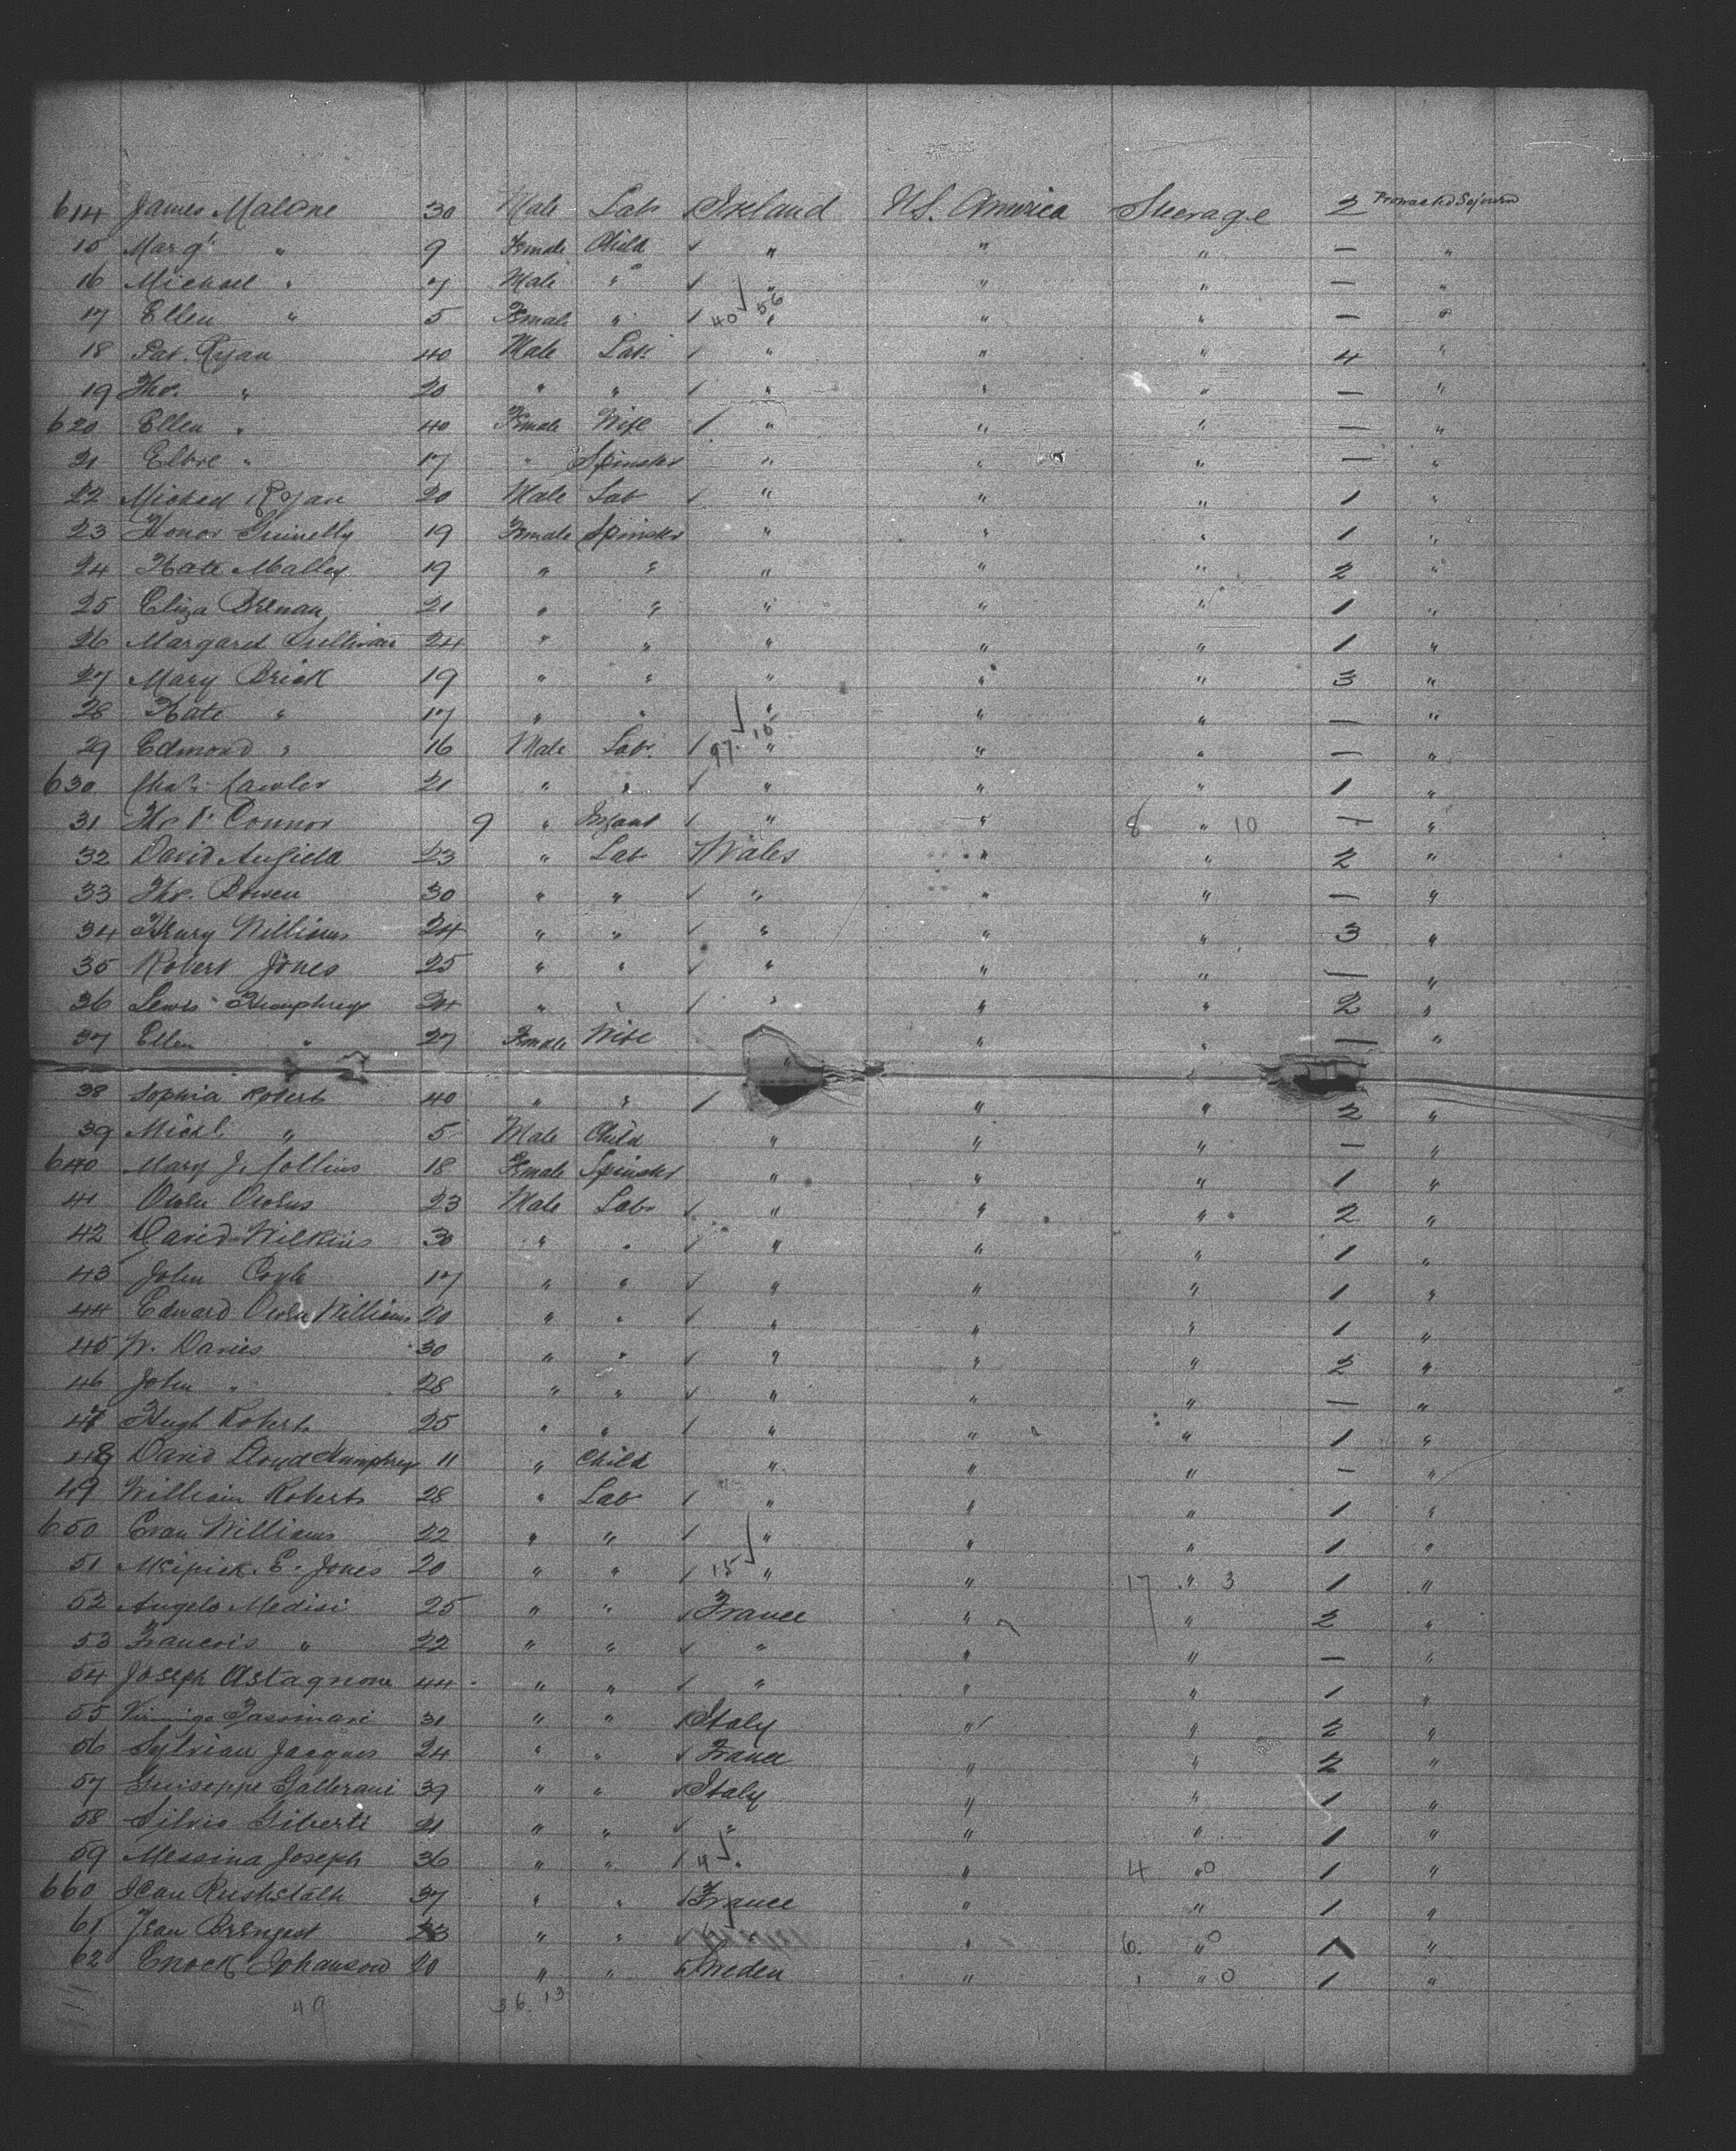 614 James Malone 30 Male Lab Ireland U.S. America Steerage 2 Protracted Sojourn
15 Margt " 9 Female Child " " " — "
16 Michael " 7 Male " " " " — "
17 Ellen " 5 Female " 40 56 " " " — "
18 Pat. Ryan 40 Male Lab. " " " 4 "
19 Tho. " 20 " " " " " — "
620 Ellen " 40 Female Wife " " " — "
21 " 17 " Spinster " " " — "
22 Michael Ryan 20 Male Lab " " " 1 "
23 Honor 19 Female Spinster " " " 1 "
24 Kate Malley 19 " " " " " 2 "
25 Eliza Brenan 21 " " " " " 1 "
26 Margaret Sullivan 24 " " " " " 1 "
27 Mary Brick 19 " " " " " 3 "
28 Kate " 17 " " " " " — "
29 Edmond " 16 Male Lab. 97. 15 " " " — "
630 Lawler 21 " " " " " 1 "
31 Connor 9 " Infant " " 8 " 10 — "
32 David 23 " Lab Wales " " 2 "
33 Tho. Bowen 30 " " " " " — "
34 Henry Williams 24 " " " " " 3 "
35 Robert Jones 25 " " " " " — "
36 Lewis Humphrey 24 " " " " " 2 "
37 Ellen " 27 Female Wife " " — "
38 Sophia Roberts 40 " " " " 2 "
39 Michl. " 5 Male Child " " " — "
640 Mary J. Collins 18 Female Spinster " " " 1 "
41 Owen Owens 23 Male Lab " " " 2 "
42 David Wilkins 30 " " " " " 1 "
43 John 17 " " " " " 1 "
44 Edward Owen Williams 20 " " " " " 1 "
45 W. Davies 30 " " " " " 2 "
46 John " 28 " " " " " — "
47 Hugh Roberts 25 " " " " " 1 "
48 David Lloyd Humphrey 11 " Child " " " — "
49 William Roberts 28 " Lab " " " 1 "
650 Evan Williams 22 " " " " " 1 "
51 E. Jones 20 " " 15 " " 17 " 3 1 "
52 Angelo Medisi 25 " " France " " 2 "
53 Francois " 22 " " " " " — "
54 Joseph Astagnone 44 " " " " " 1 "
55 31 " " Italy " " 2 "
56 Sylvian Jacques 24 " " France " " 2 "
57 Guiseppe Gallerani 39 " " Italy " " 1 "
58 Silvio Giberti 21 " " " " " 1 "
59 Messina Joseph 36 " " 4 " " 4 " 0 1 "
660 Jean 37 " " France " " 1 "
61 Jean " " " 6. " 0 1 "
62 Enock Johanson 20 " " Sweden " " 0 1 "
49 36. 13